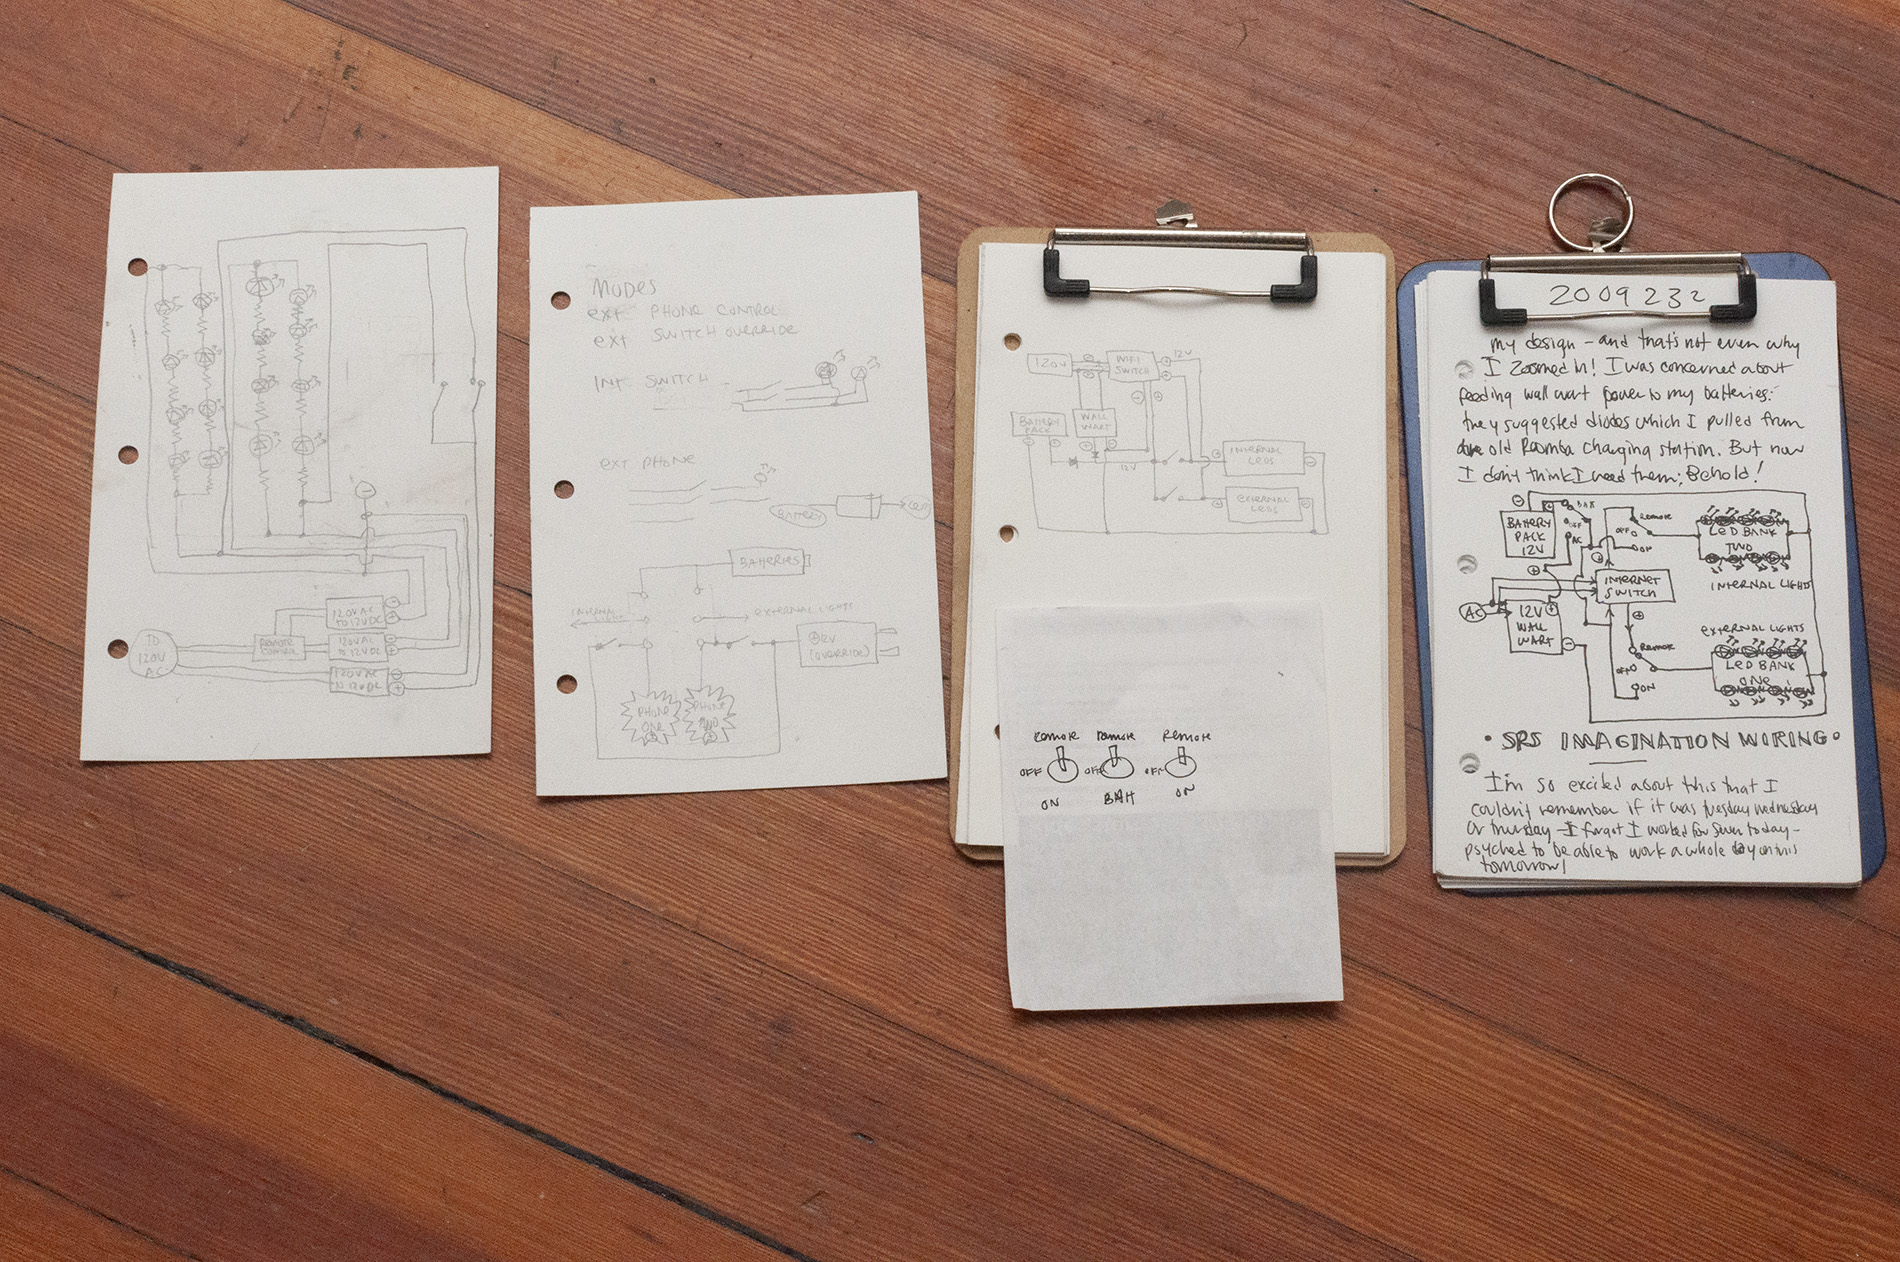 TO
120V
AC
REMOTE
CONTROL
120VAC
TO 12VDC
120VAC
TO 12VDC
120VAC
TO 12VDC
MODES
ext PHONE CONTROL
ext SWITCH OVERRIDE
INT SWITCH
ext PHONE
BATTERY
BATTERIES
INTERNAL
LIGHT
EXTERNAL LIGHTS
12V
(OVERRIDE)
PHONE
ONE
PHONE
TWO
120V
WIFI
SWITCH
12V
BATTERY
PACK
WALL
WART
12V
INTERNAL
LEDS
EXTERNAL
LEDS
Remote remote Remote
OFF OFF OFF
ON BAH ON
2009 232
my design - and that's not even why
I zoomed in! I was concerned about
feeding wall wart power to my batteries:
they suggested diodes which I pulled from
old Roomba charging station. But now
I don't think I need them; Behold!
BATTERY
PACK
12V
BAH
OFF
AC
Remote
OFF
ON
LED BANK
TWO
INTERNAL LIGHTS
INTERNET
SWITCH
AC
12V
WALL
WART
EXTERNAL LIGHTS
Remote
OFF
ON
LED BANK
ONE
• SRS IMAGINATION WIRING •
I'm so excited about this that I
couldn't remember if it was tuesday wednesday
or thursday - I forgot I worked for seven today -
psyched to be able to work a whole day on this
tomorrow!